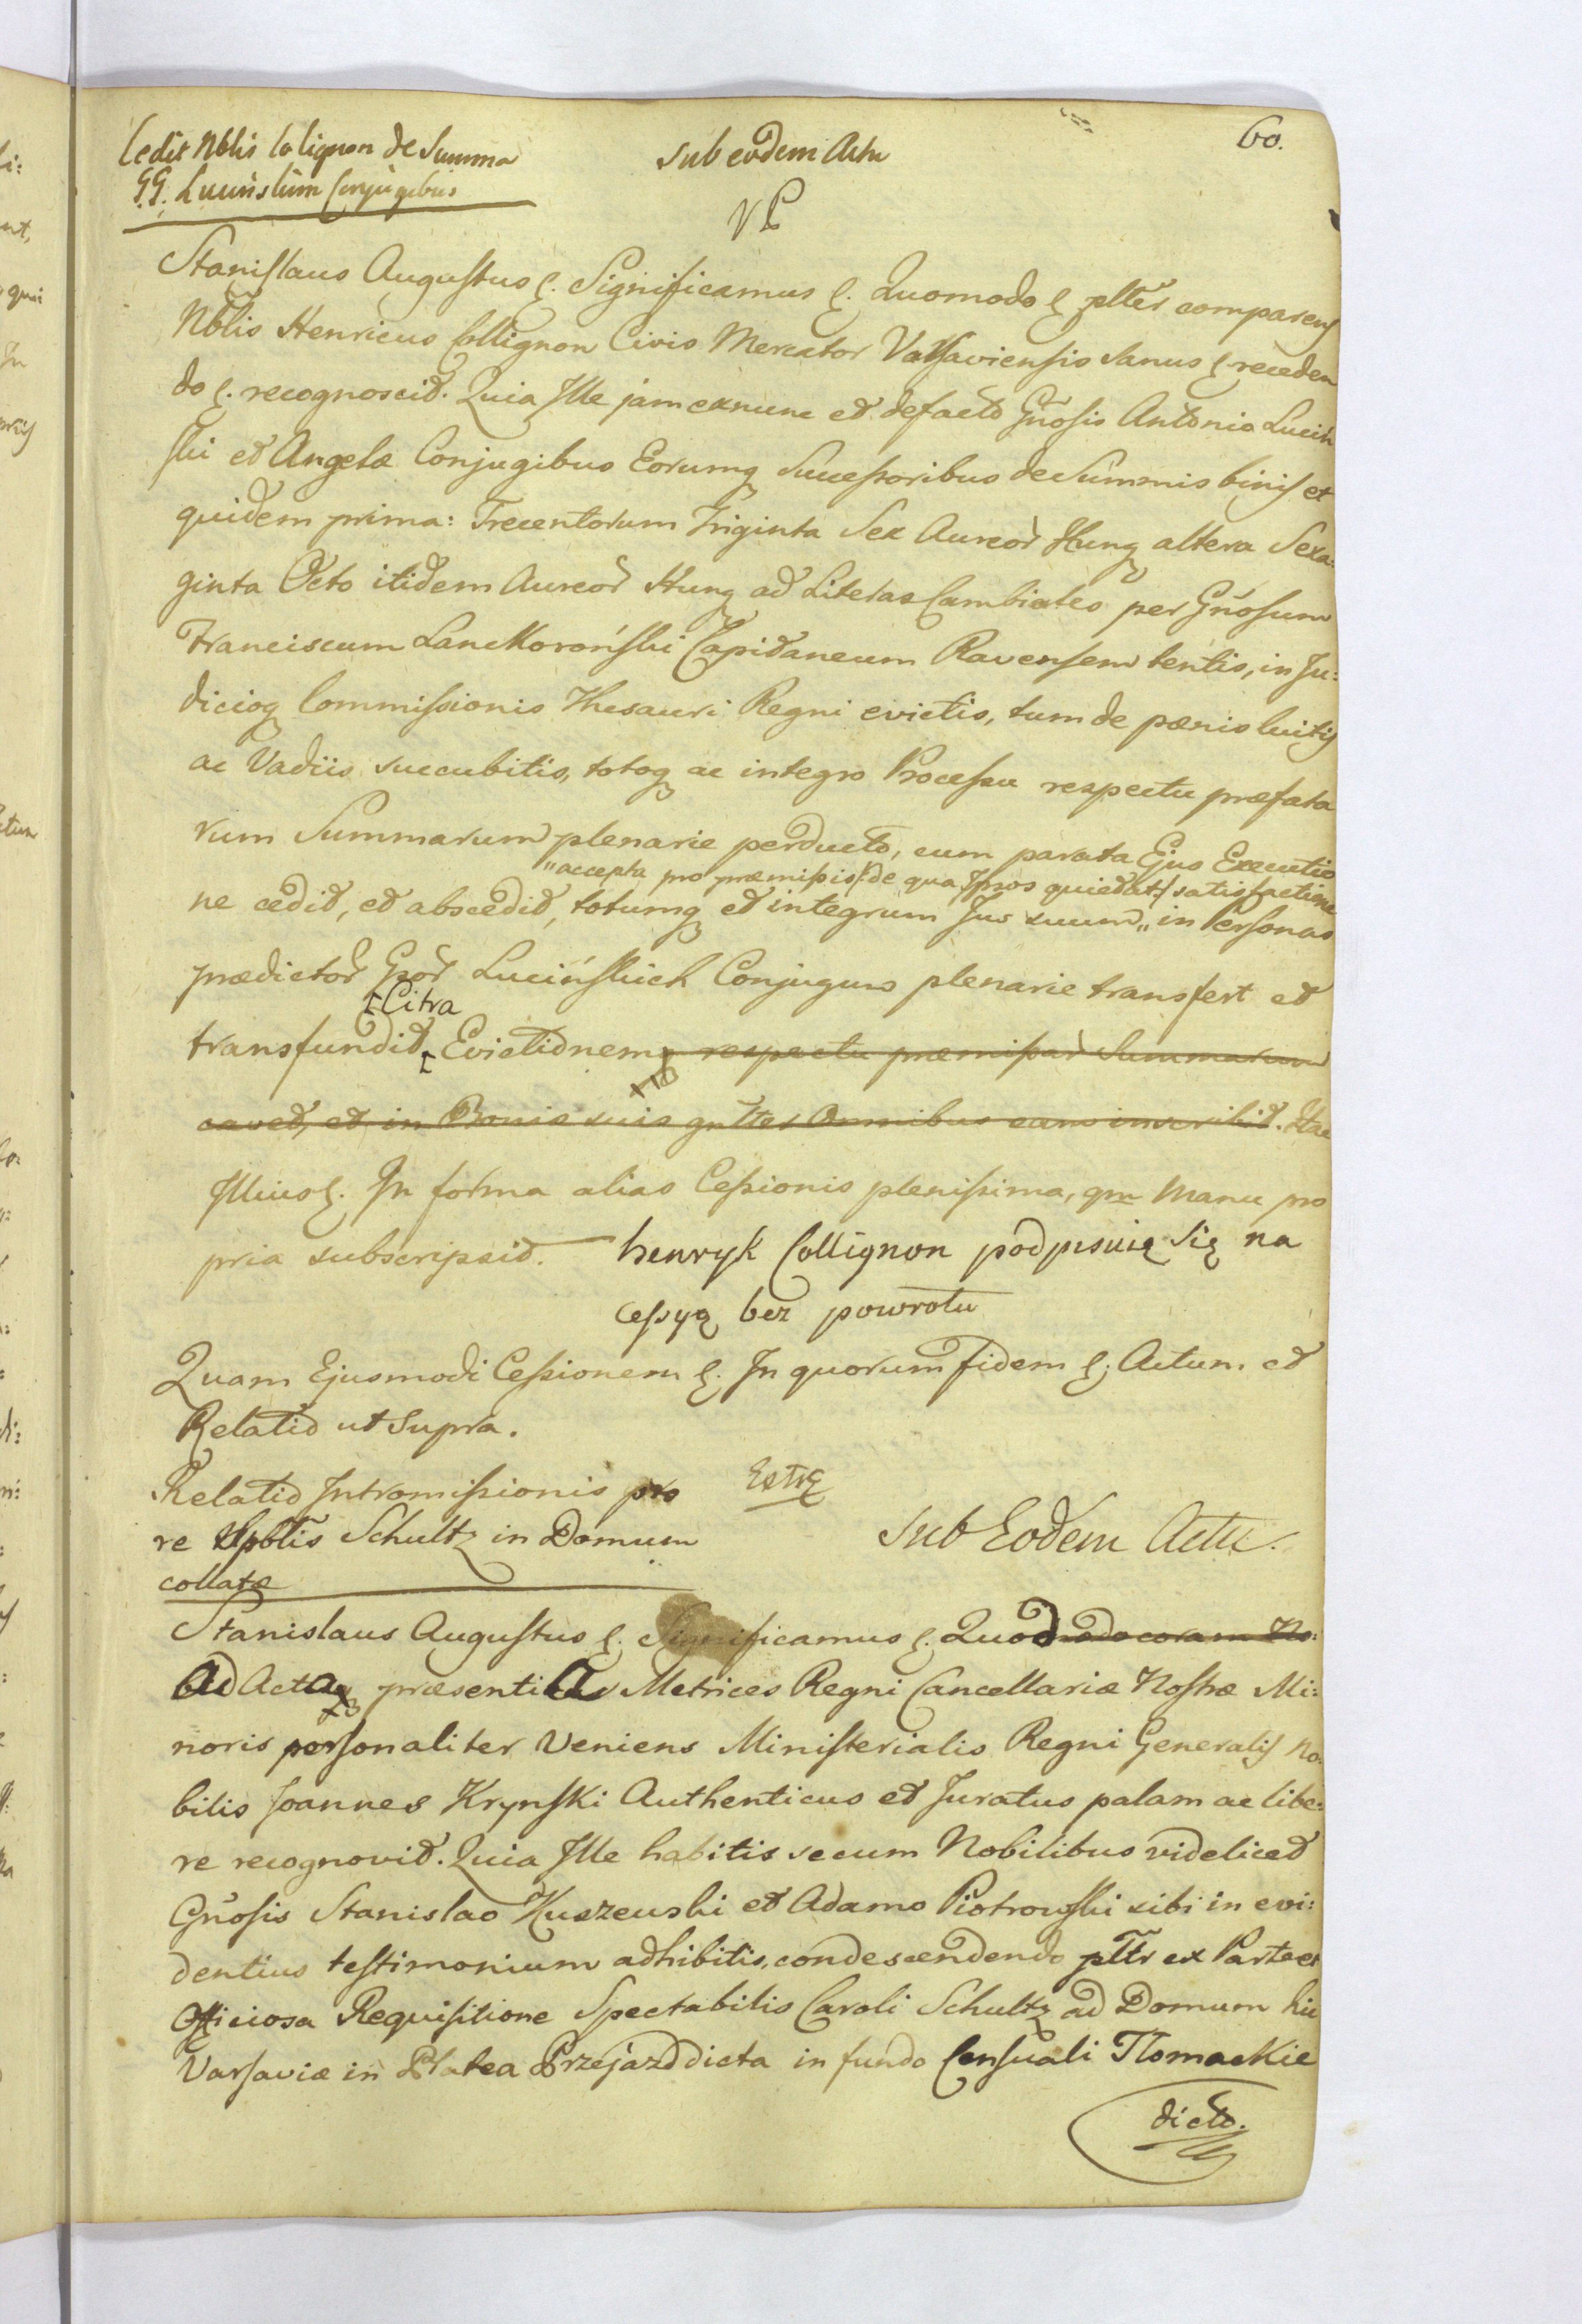 60.
Cedit Nblis Colignon de Summa
GG. Lucinskim Conjugibus
sub eodem Actu
Stanislaus Augustus &. Significamus &. Quomodo & pltter comparens
Nblis Henricus Collignon Civis Mercator Varsaviensis sanus & receden
do &. recognoscit. Quia Ille jam exnunc et defacto Gnosis Antonio Luciń
ski et Angelæ Conjugibus Eorumq Successoribus de Summis binis et
quidem prima: Trecentorum Triginta Sex Aureor Hung altera Sexa:
ginta Octo itidem Aureor Hung ad Literas Cambiales per Gnosum
Franciscum Lanckoroński Capitaneum Ravensem tentis, in Ju:
dicioq Commissionis Thesauri Regni evictis, tum de pœnis luitis
ac Vadiis succubitis, totoq ac integro Processu respectu præfata
rum Summarum plenarie perducto, cum parata Ejus Executio
"accepta pro præmissis /:de qua Ipsos quietat:/ satisfactione
ne cedit, et abscedit, totumq et integrum Jus suum " in Personas
prædictor Gnor Lucińskich Conjugum plenarie transfert et
Citra
transfundit, Evictionem respectu præmissar Summarum
cavet, et in Bonis suis gnltter Omnibus eam inscribit. Itæ
Illius &. In forma alias Cessionis plenissima, qm Manu pro
pria subscripsit. henryk Collignon podpisuię się na
cessyą bez powrotu
Quam Ejusmodi Cessionem &. In quorum fidem &. Actum et
Relatio ut supra.
Relatio Intromissionis pro
re Spblis Schultz in Domum
collatæ
Extr
Sub Eodem Actu.
Stanislaus Augustus &. Significamus &. Quod modo coram No:
Ad Acta præsentia Metrices Regni Cancellariæ Nostræ Mi:
noris personaliter Veniens Ministerialis Regni Generalis No:
bilis Joannes Krynski Authenticus et Juratus palam ac libe:
re recognovit. Quia Ille habitis secum Nobilibus videlicet
Gnosis Stanislao Kuszewski et Adamo Piotrowski sibi in evi:
dentius testimonium adhibitis, condescendendo plttr ex Parte et
Officiosa Requisitione Spectabilis Caroli Schultz ad Domum hic
Varsaviæ in Platea Przejazd dicta in fundo Censuali Tłomackie
dicto.